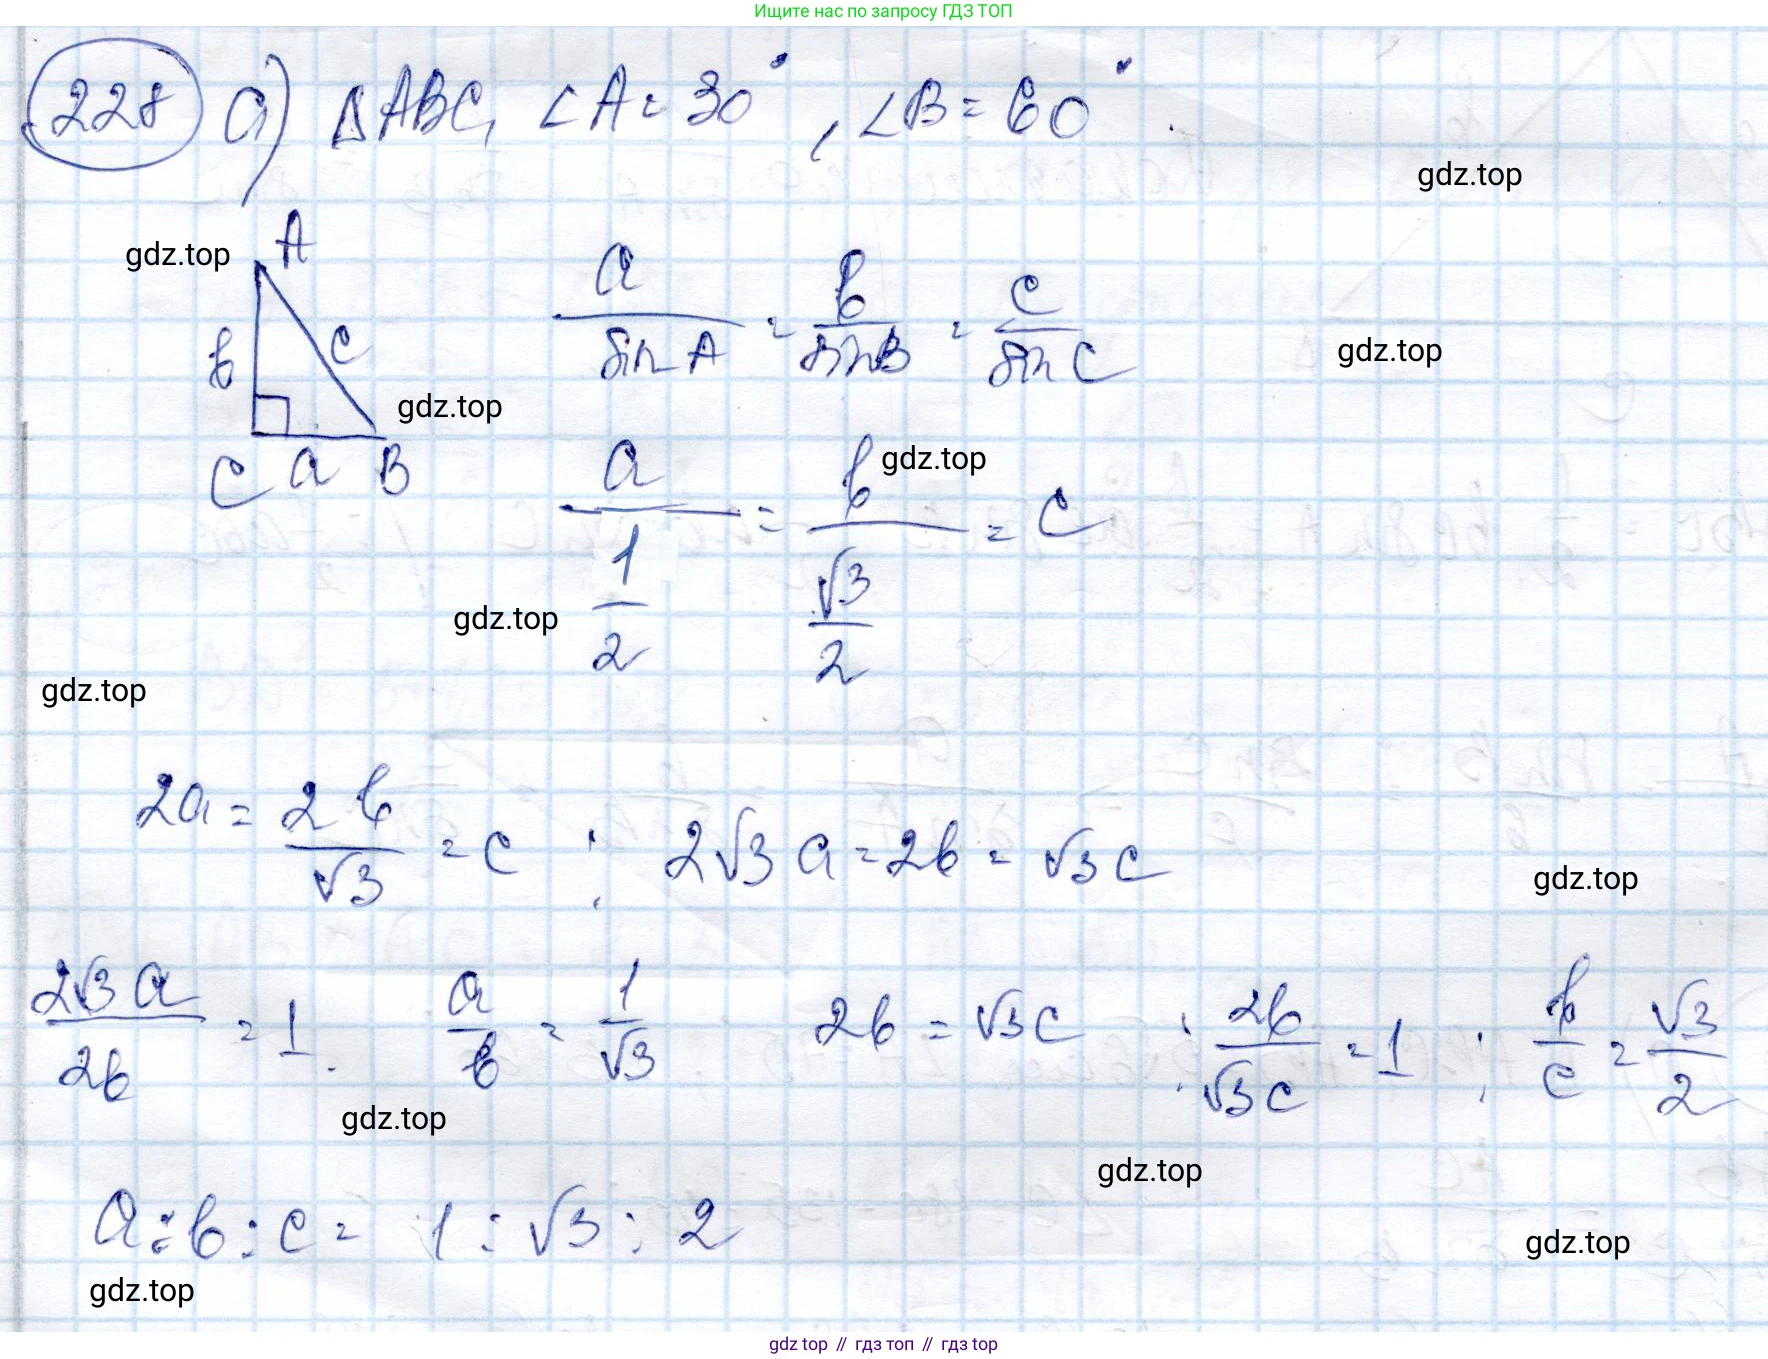 Ищите нас по запросу ГДЗ ТОП
228 а) ΔABC, ∠A = 30°, ∠B = 60°.
gdz.top
gdz.top
A
b
c
C a B
a/sin A = b/sin B = c/sin C
gdz.top
gdz.top
gdz.top
a/(1/2) = b/(√3/2) = c
gdz.top
gdz.top
2a = 2b/√3 = c ; 2√3 a = 2b = √3 c
gdz.top
2√3 a/2b = 1. a/b = 1/√3 2b = √3 c ; 2b/√3 c = 1 ; b/c = √3/2
gdz.top
gdz.top
a : b : c = 1 : √3 : 2
gdz.top
gdz.top
gdz top // гдз топ // гдз top